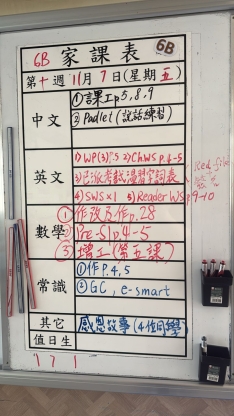 6B 家課表 6B
第十週 11月7日(星期五)
中文
①課工p5,8,9
②Padlet(説話練習)
英文
1) WP(3)P.5 2) ChWS p.4-5
4) SWS x1 5) Reader WS p9-10
數學
① 作改及作p.28
② Pre-S1p.4-5
③ 增工(第五課)
常識
①作P.4,5
②GC, e-smart
其它
感恩故事(4位同學)
值日生
1 7 1